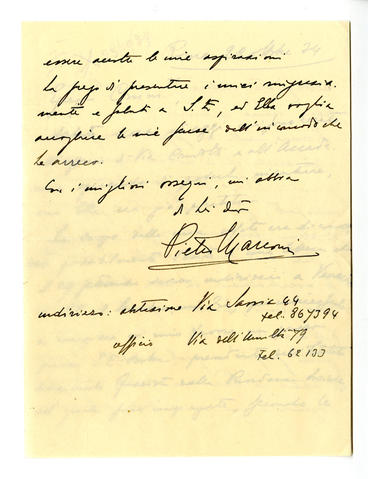 essere accolte le mie aspirazioni
La prego di presentare i miei ringrazia-
menti e saluti a S. E., ed Ella voglia
accogliere le mie scuse dell'incomodo che
Le arreco.
Con i migliori ossequi, mi abbia
di Lei
Pietro Marconi
indirizzo: abitazione Via Savoia 44
tel. 867394
ufficio Via dell'Umiltà 79
tel. 62133